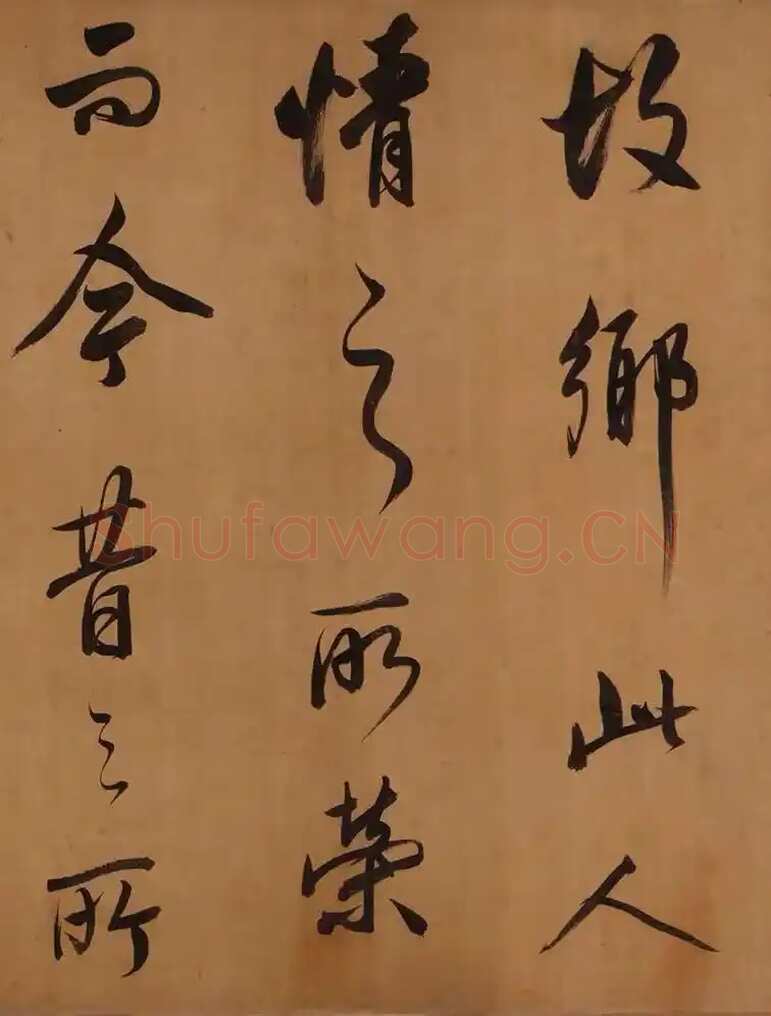 故鄉此人
情之所榮
而今昔之所
Shufawang.CN